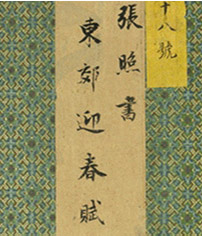 十八號
張照書
東郊迎春賦